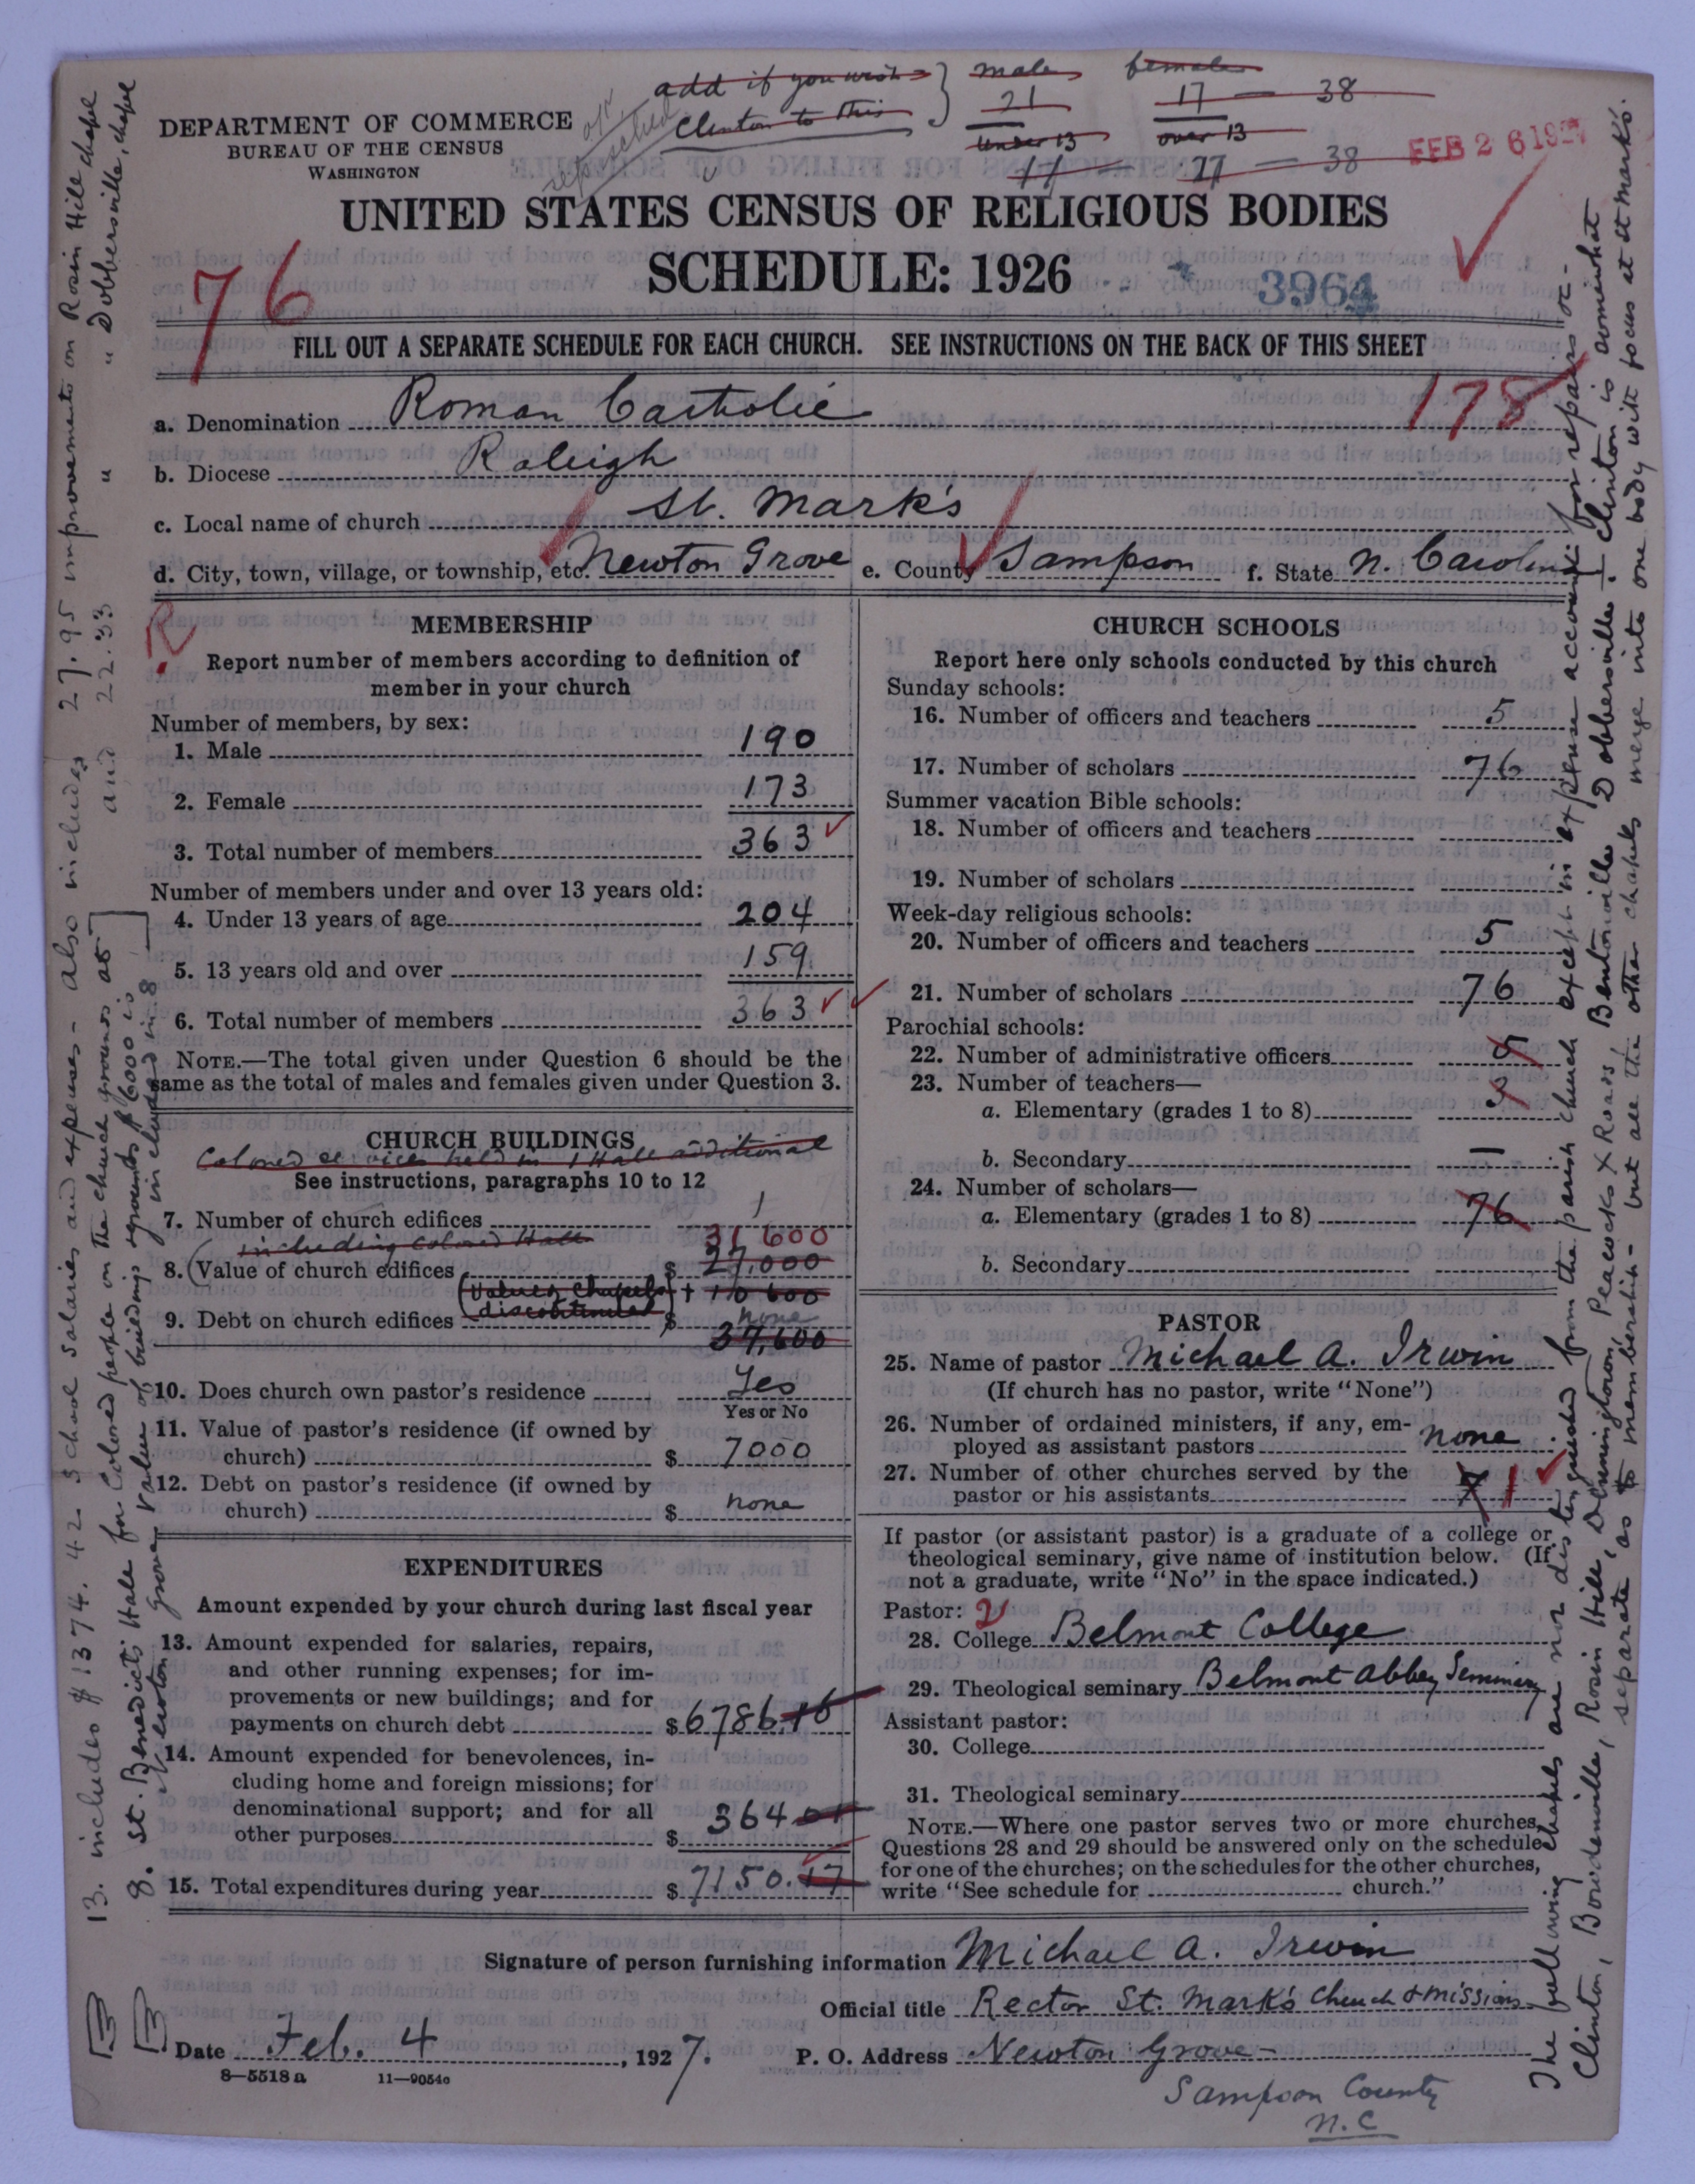 add if you wish } male female
Clinton to this 21 17 — 38
under 13 over 13
11 — 27 — 38
FEB 26 1927
DEPARTMENT OF COMMERCE
BUREAU OF THE CENSUS
WASHINGTON
UNITED STATES CENSUS OF RELIGIOUS BODIES
SCHEDULE: 1926
76
3964
FILL OUT A SEPARATE SCHEDULE FOR EACH CHURCH. SEE INSTRUCTIONS ON THE BACK OF THIS SHEET
178
a. Denomination Roman Catholic
b. Diocese Raleigh
c. Local name of church St. Mark's
d. City, town, village, or township, etc. Newton Grove e. County Sampson f. State N. Carolina
R
MEMBERSHIP
Report number of members according to definition of
member in your church
Number of members, by sex:
1. Male 190
2. Female 173
3. Total number of members 363
Number of members under and over 13 years old:
4. Under 13 years of age 204
5. 13 years old and over 159
6. Total number of members 363
NOTE.—The total given under Question 6 should be the
same as the total of males and females given under Question 3.
CHURCH BUILDINGS
Colored services held in 1 Hall additional
See instructions, paragraphs 10 to 12
7. Number of church edifices 1
including Colored Hall 31 600
8. (Value of church edifices $ 27,000
(Value of chapels discontinued) + 10 600
9. Debt on church edifices $ none
37,600
10. Does church own pastor's residence Yes
Yes or No
11. Value of pastor's residence (if owned by
church) $ 7000
12. Debt on pastor's residence (if owned by
church) $ none
EXPENDITURES
Amount expended by your church during last fiscal year
13. Amount expended for salaries, repairs,
and other running expenses; for im-
provements or new buildings; and for
payments on church debt $ 6786.16
14. Amount expended for benevolences, in-
cluding home and foreign missions; for
denominational support; and for all
other purposes $ 364 01
15. Total expenditures during year $ 7150.17
CHURCH SCHOOLS
Report here only schools conducted by this church
Sunday schools:
16. Number of officers and teachers 5
17. Number of scholars 76
Summer vacation Bible schools:
18. Number of officers and teachers
19. Number of scholars
Week-day religious schools:
20. Number of officers and teachers 5
21. Number of scholars 76
Parochial schools:
22. Number of administrative officers 5
23. Number of teachers—
a. Elementary (grades 1 to 8) 3
b. Secondary —
24. Number of scholars—
a. Elementary (grades 1 to 8) 76
b. Secondary
PASTOR
25. Name of pastor Michael A. Irwin
(If church has no pastor, write "None")
26. Number of ordained ministers, if any, em-
ployed as assistant pastors none
27. Number of other churches served by the
pastor or his assistants 7 1
If pastor (or assistant pastor) is a graduate of a college or
theological seminary, give name of institution below. (If
not a graduate, write "No" in the space indicated.)
Pastor: 2
28. College Belmont College
29. Theological seminary Belmont Abbey Seminary
Assistant pastor:
30. College
31. Theological seminary
NOTE.—Where one pastor serves two or more churches,
Questions 28 and 29 should be answered only on the schedule
for one of the churches; on the schedules for the other churches,
write "See schedule for church."
Signature of person furnishing information Michael A. Irwin
Official title Rector St. Mark's Church & missions
Date Feb. 4, 1927. P. O. Address Newton Grove—
Sampson County
N.C
8—5518a 11—9054c
13. includes $1374.42 School salaries and expenses— also includes 27.95 improvements on Rosin Hill chapel
and 22.33 " " Dobbersville, chapel
8. St. Benedict's Hall for Colored people on the church grounds at
Newton Grove
Value of buildings & grounds $6000 is
included in 8
The following chapels are not distinguished from the parish church except in expense account for repairs etc—
Clinton, Bowdenville, Rosin Hill, Dunnington, Peacocks X Roads, Bentonville, Dobbersville. Clinton is somewhat
separate as to membership— but all the other chapels merge into one body with focus at St Mark's.